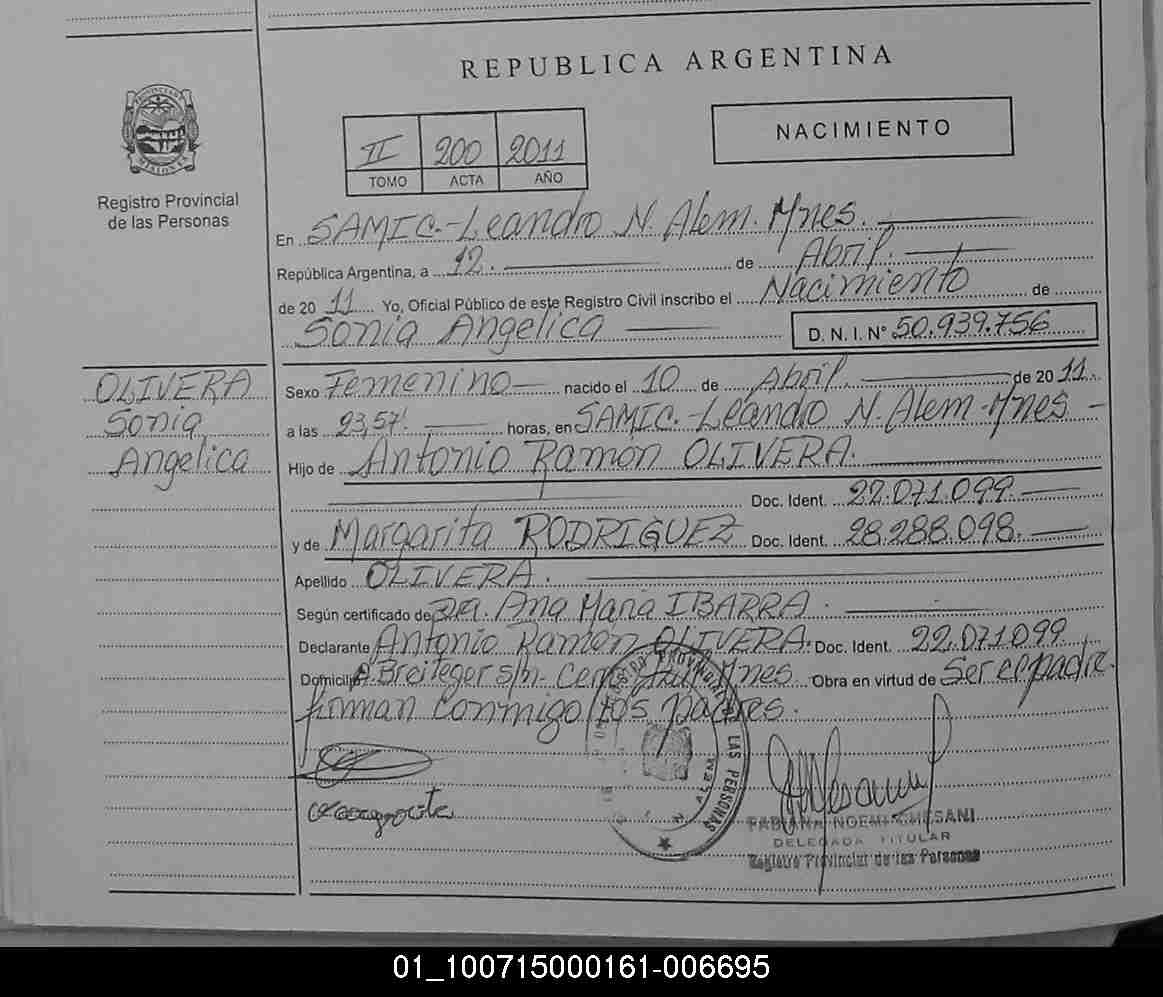 REPUBLICA ARGENTINA
PROVINCIA DE MISIONES
Registro Provincial
de las Personas
II 200 2011
TOMO ACTA AÑO
NACIMIENTO
En SAMIC.-Leandro N. Alem. Mnes.
República Argentina, a 12. de Abril.
de 2011 Yo, Oficial Público de este Registro Civil inscribo el Nacimiento de
Sonia Angelica D. N. I. N° 50.939.756
OLIVERA
Sonia
Angelica
Sexo Femenino nacido el 10 de Abril. de 2011.
a las 23,57. horas, en SAMIC.-Leandro N. Alem-Mnes
Hijo de Antonio Ramón OLIVERA.
Doc. Ident. 22.071.099.
y de Margarita RODRIGUEZ Doc. Ident. 28.288.098.
Apellido OLIVERA.
Según certificado de Dra. Ana Maria IBARRA.
Declarante Antonio Ramon OLIVERA. Doc. Ident. 22.071.099
Domicilio Breiteger s/n- Mnes Obra en virtud de Ser el padre.
firman conmigo los padres.
REGISTRO PROVINCIAL DE LAS PERSONAS
FABIANA NOEMI GHESANI
DELEGADA TITULAR
Registro Provincial de las Personas
01_100715000161-006695